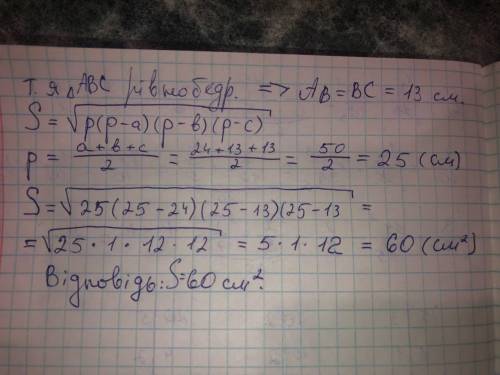 Т. я △ABC рівнобедр. => AB = BC = 13 см.
S = √p(p-a)(p-b)(p-c)
p = a+b+c/2 = 24+13+13/2 = 50/2 = 25 (см)
S = √25(25-24)(25-13)(25-13 =
= √25·1·12·12 = 5·1·12 = 60 (см²)
Відповідь: S=60 см².